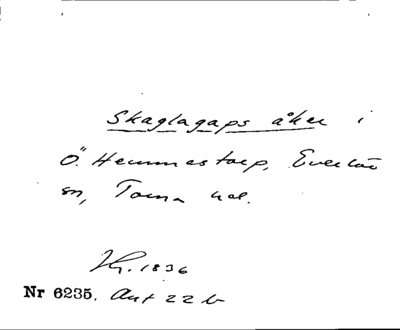 Skaglagaps åker i
Ö. Hemmestorp, Everlöv
sn, Torna hd.
Hg. 1836
Nr 6235. Ant 22 b